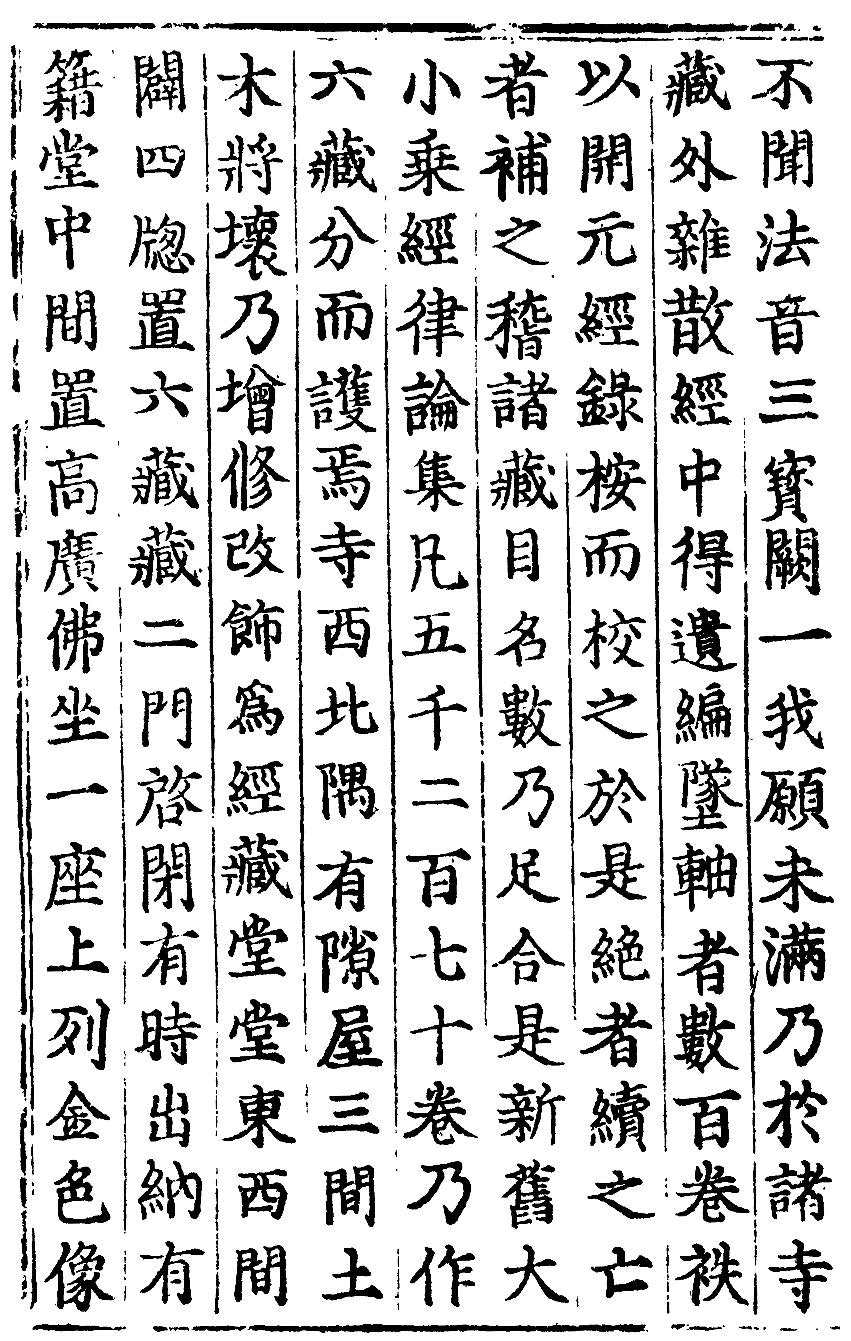 不聞法音三寶闕一我願未滿乃於諸寺
藏外雜散經中得遺編墜軸者數百卷袟
以開元經錄桉而校之於是絶者續之亡
者補之稽諸藏目名數乃足合是新舊大
小乗經律論集凡五千二百七十卷乃作
六藏分而護焉寺西北隅有隙屋三間土
木將壞乃增修改飾爲經藏堂堂東西間
闢四牕置六藏藏二門啓閉有時出納有
籍堂中間置高廣佛坐一座上列金色像